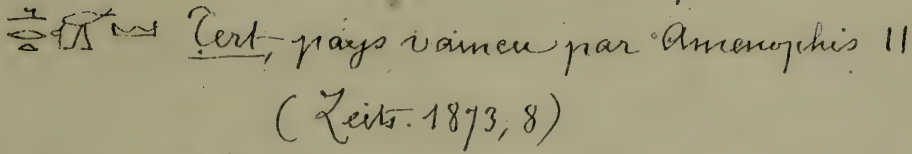 Tert, pays vaincu par Amenophis II
(Zeits. 1873, 8)